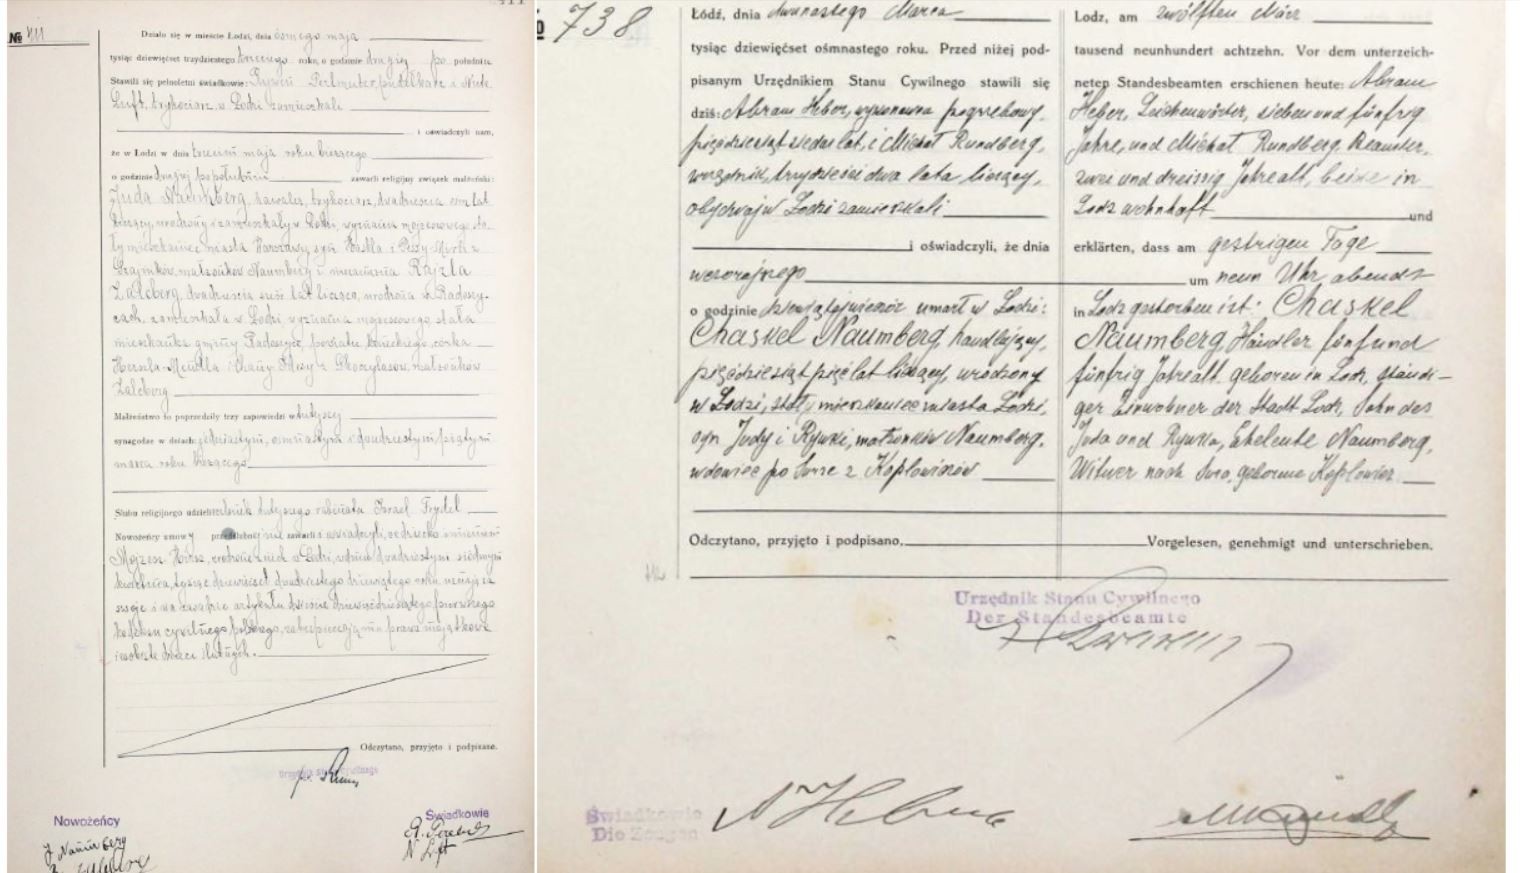 № 411
Działo się w mieście Łodzi, dnia ósmego maja
tysiąc dziewięćset trzydziestego trzeciego roku, o godzinie drugiej po południu.
Stawili się pełnoletni świadkowie: Perlmuter, pudełkarz i
Luft, trykociarz, w Łodzi zamieszkali
i oświadczyli nam,
że w Łodzi w dniu maja roku bieżącego
o godzinie drugiej popołudniu zawarli religijny związek małżeński:
Juda Naumberg, kawaler, trykociarz, dwadzieścia lat
liczący, urodzony i zamieszkały w Łodzi, wyznania mojżeszowego sta-
ły mieszkaniec miasta Warszawy, syn i z
małżonków Naumberg i niezamężna Rajzla
Zalcberg, dwadzieścia sześć lat licząca, urodzona w Radoszy-
cach, zamieszkała w Łodzi, wyznania mojżeszowego, stała
mieszkanka gminy Radoszyce, powiatu koneckiego, córka
Herszla-Mendla i Chany z małżonków
Zalcberg
Małżeństwo to poprzedziły trzy zapowiedzi w tutejszej
synagodze w dniach: jedenastym, osiemnastym i dwudziestym piątym
marca roku bieżącego
Ślubu religijnego udzielił członek tutejszego rabinatu Izrael Frydel
Nowożeńcy umowy przedślubnej nie zawarli i oświadczyli, że dziecko imieniem
Mojżesz Hersz, urodzone z nich w Łodzi, w dniu dwudziestym siódmym
kwietnia, tysiąc dziewięćset dwudziestego dziewiątego roku uznają za
swoje i na zasadzie artykułu dwieście dziewięćdziesiątego pierwszego
kodeksu cywilnego polskiego, zabezpieczają mu prawa majątkowe
i osobiste dzieci ślubnych.
Odczytano, przyjęto i podpisano.
Urzędnik Stanu Cywilnego
Nowożeńcy
Świadkowie
J Naumberg
N Luft
738
Łódź, dnia dwunastego Marca
tysiąc dziewięćset ośmnastego roku. Przed niżej pod-
pisanym Urzędnikiem Stanu Cywilnego stawili się
dziś: Abram Heber, wykonawca pogrzebowy,
pięćdziesiąt siedem lat, i Michał Rundberg,
urzędnik, trzydzieści dwa lata liczący,
obydwaj w Łodzi zamieszkali
i oświadczyli, że dnia
wczorajszego
o godzinie dziewiątej wieczór umarł w Łodzi:
Chaskel Naumberg, handlujący,
pięćdziesiąt pięć lat liczący, urodzony
w Łodzi, stały mieszkaniec miasta Łodzi,
syn Judy i Rywki, małżonków Naumberg,
wdowiec po Surze z Kopłowiczów
Odczytano, przyjęto i podpisano.
Lodz, am zwölften März
tausend neunhundert achtzehn. Vor dem unterzeich-
neten Standesbeamten erschienen heute: Abram
Heber, Leichenwärter, sieben und fünfzig
Jahre, und Michał Rundberg, Beamter,
zwei und dreissig Jahre alt, beide in
Lodz wohnhaft und
erklärten, dass am gestrigen Tage
um neun Uhr abends
in Lodz gestorben ist: Chaskel
Naumberg, Händler fünf und
fünfzig Jahre alt, geboren in Lodz, ständi-
ger Einwohner der Stadt Lodz, Sohn des
Juda und Rywka, Eheleute Naumberg,
Witwer nach Sura, geborene Kopłowicz
Vorgelesen, genehmigt und unterschrieben.
Urzędnik Stanu Cywilnego
Der Standesbeamte
Świadkowie
Die Zeugen